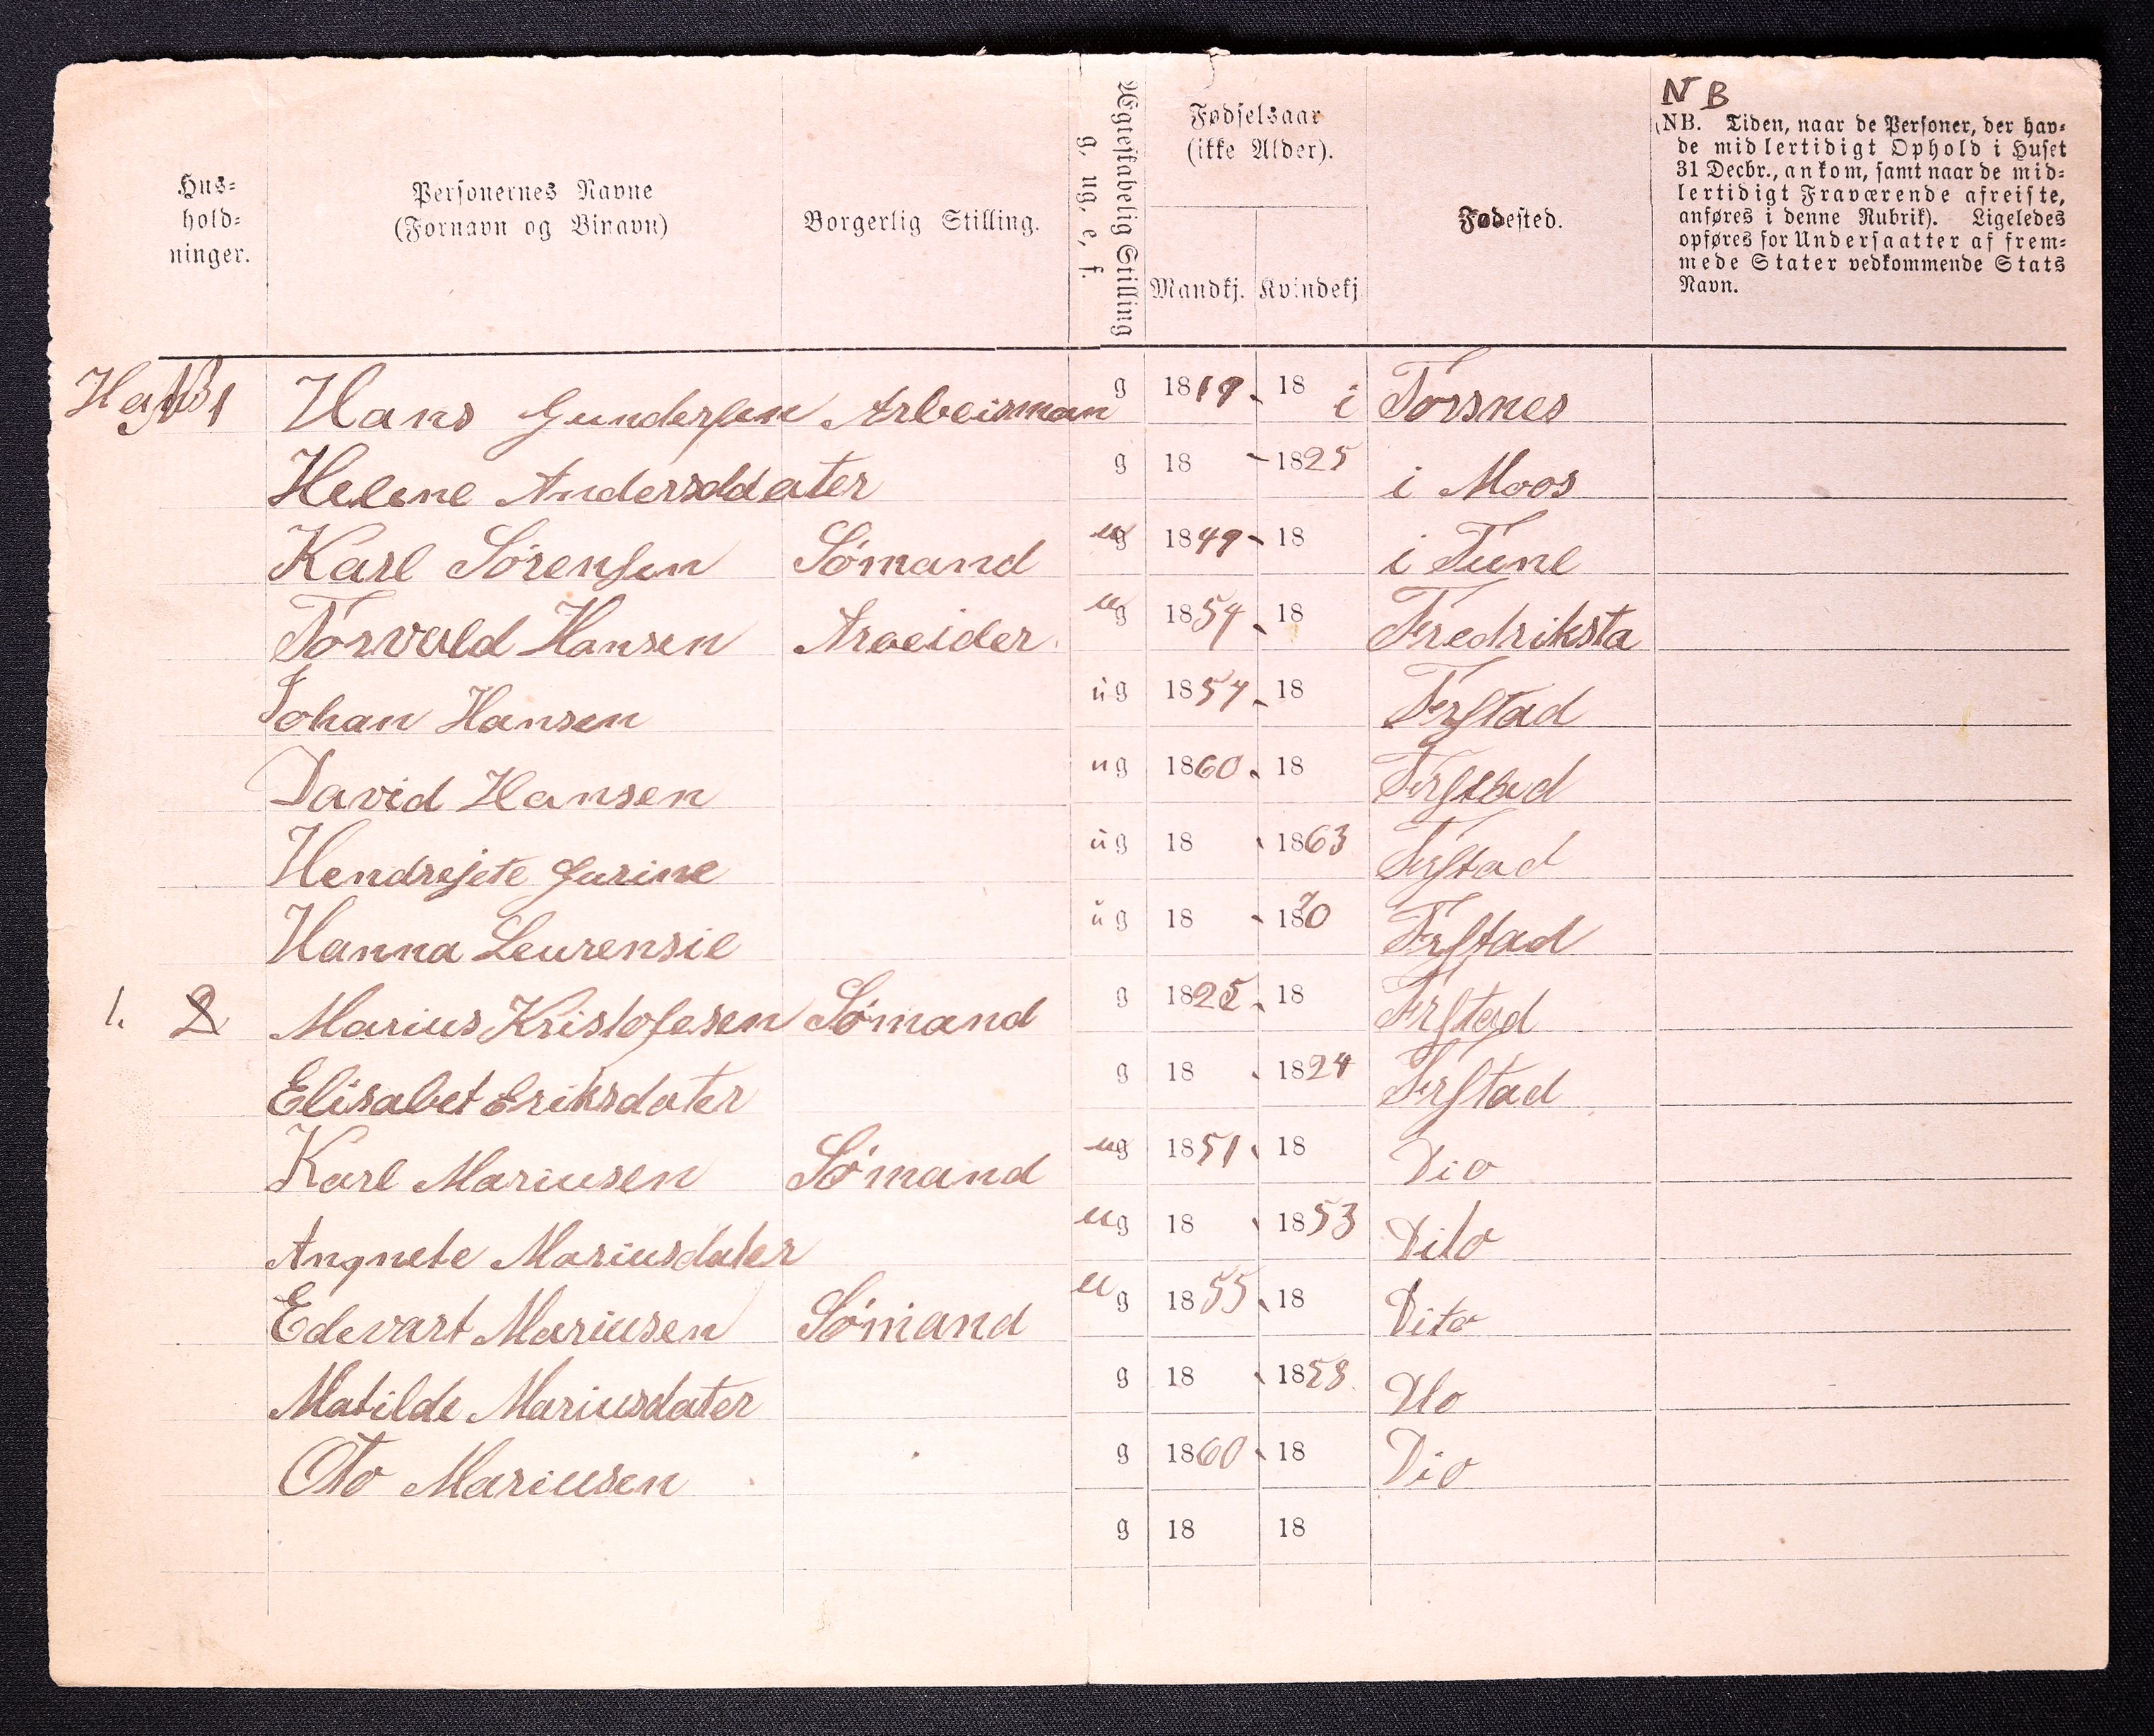 Hus-
hold-
ninger.
Personernes Navne
(Fornavn og Binavn)
Borgerlig Stilling.
Ægteskabelig Stilling
g, ug, e, f.
Fødselsaar
(ikke Alder).
Mandkj.
Kvindekj
Fødested.
N B
(NB. Tiden, naar de Personer, der hav-
de midlertidigt Ophold i Huset
31 Decbr., ankom, samt naar de mid-
lertidigt Fraværende afreiste,
anføres i denne Rubrik). Ligeledes
opføres for Undersaatter af frem-
mede Stater vedkommende Stats
Navn.
1 Hans Gundersen Arbeisman g 1819 18 i Torsnes
Helene Andersddater g 18 1825 i Moos
Karl Sørensen Sømand ug 1849 18 i Tune
Torvald Hansen Arbeider ug 1854 18 Fredriksta
Johan Hansen ug 1857 18 Frstad
David Hansen ug 1860 18 Frstad
Hendrejete Jurine ug 18 1863 Frstad
Hanna Leurensie ug 18 1870 Frstad
1. 2 Marius Kristofesen Sømand g 1825 18 Frstad
Elisabet Eriksdater g 18 1824 Frstad
Karl Mariusen Sømand ug 1851 18 Dio
Angnete Mariusdater ug 18 1853 Dito
Edevart Mariusen Sømand ug 1855 18 Dito
Matilde Mariusdater g 18 1858 Do
Oto Mariusen g 1860 18 Dio
g 18 18